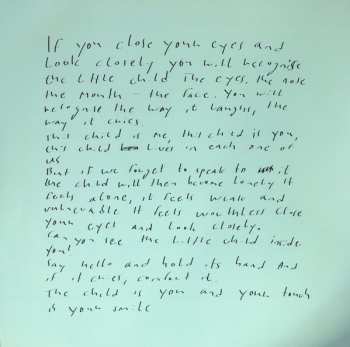 If you close your eyes and
look closely you will recognise
the little child The eyes. the nose
the mouth - the face. You will
recognise the way it laughs, the
way it cries.
This child is me, this child is you,
this child lives in each one of
us
But if we forget to speak to it
the child will then become lonely It
feels alone, it feels weak and
vulnerable It feels worthless Close
your eyes and look closely.
Can you see the little child inside
you?
Say hello and hold its hand And
if it cries, comfort it.
The child is you and your touch
is your smile